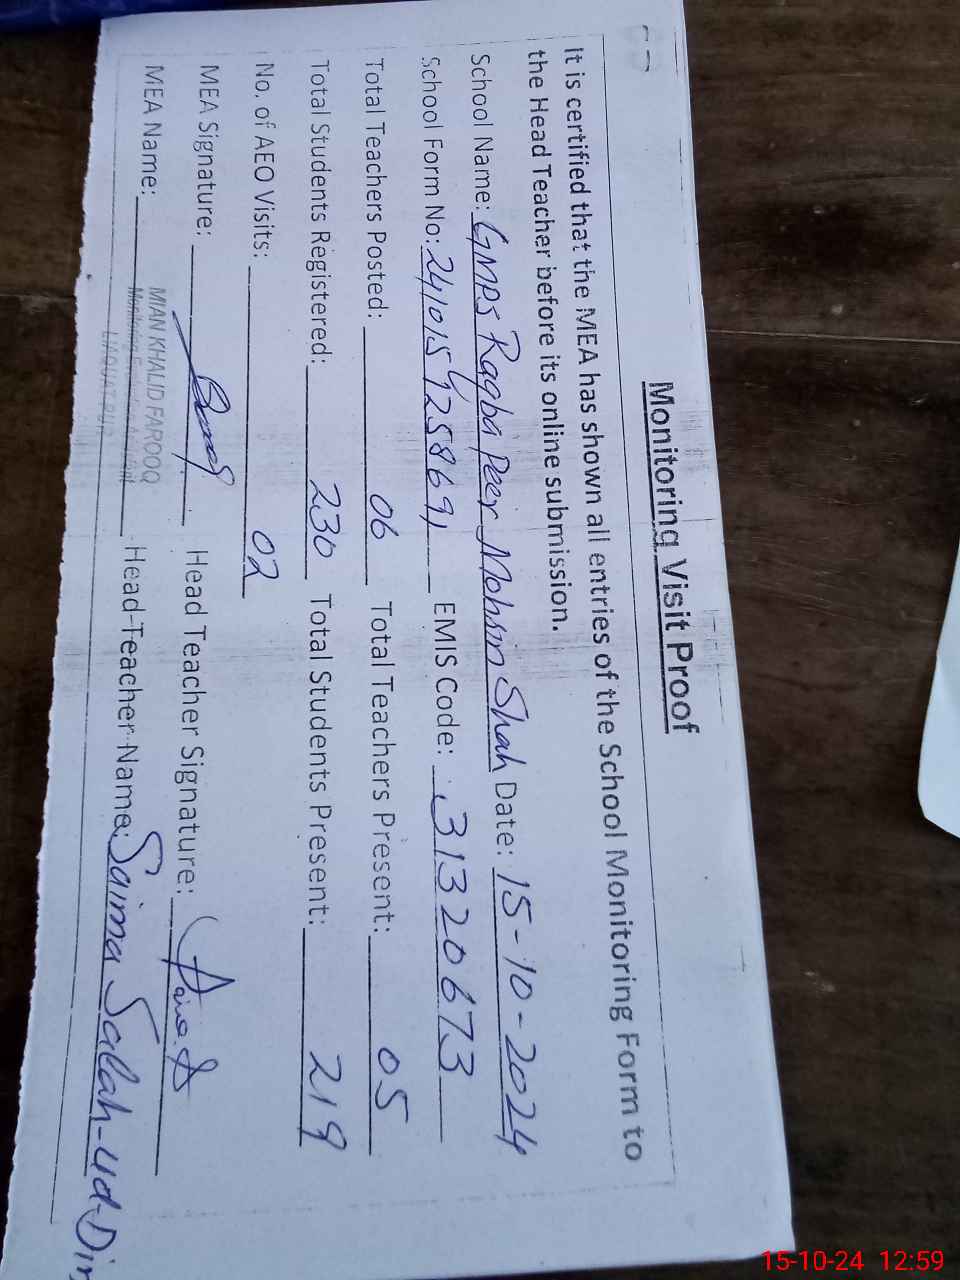 Monitoring Visit Proof
It is certified that the MEA has shown all entries of the School Monitoring Form to
the Head Teacher before its online submission.
School Name: GMPS Raqba Peer Mohsin Shah Date: 15-10-2024
School Form No: EMIS Code: 31320673
Total Teachers Posted: 06 Total Teachers Present: 05
Total Students Registered: 230 Total Students Present: 219
No. of AEO Visits: 02
MEA Signature: Head Teacher Signature:
MEA Name: MIAN KHALID FAROOQ Head Teacher Name: Saima Salah-ud-Din
Monitoring
LIAQUAT PUR
15-10-24 12:59